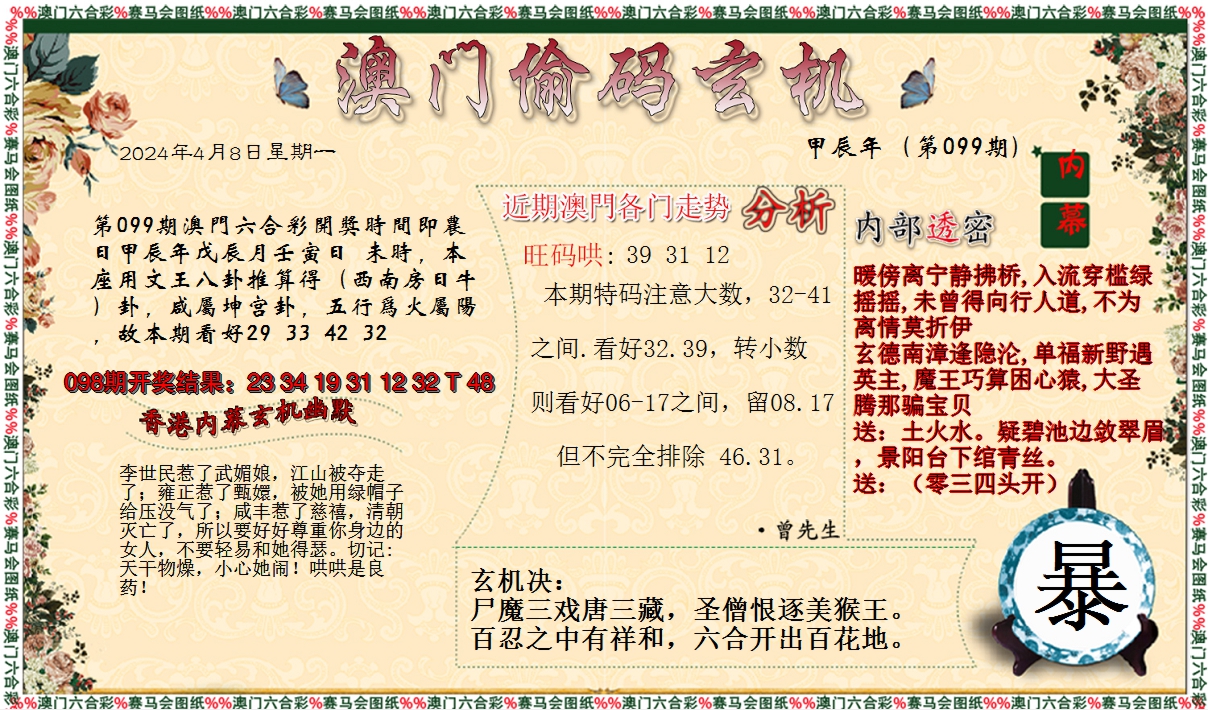 %%澳门六合彩%赛马会图纸%%澳门六合彩%赛马会图纸%%澳门六合彩%赛马会图纸%%澳门六合彩%赛马会图纸%%澳门六合彩%赛马会图纸%%澳门六合彩%赛马会图纸%%
澳门偷码玄机
2024年4月8日星期一
甲辰年（第099期）
内
幕
第099期澳門六合彩開獎時間即農
日甲辰年戊辰月壬寅日 未時，本
座用文王八卦推算得（西南房日牛
）卦，咸屬坤宫卦，五行爲火屬陽
，故本期看好29 33 42 32
098期开奖结果：23 34 19 31 12 32 T 48
香港内幕玄机幽默
李世民惹了武媚娘，江山被夺走
了；雍正惹了甄嬛，被她用绿帽子
给压没气了；咸丰惹了慈禧，清朝
灭亡了，所以要好好尊重你身边的
女人，不要轻易和她得瑟。切记：
天干物燥，小心她闹！哄哄是良
药！
近期澳門各门走势 分析
旺码哄：39 31 12
本期特码注意大数，32-41
之间.看好32.39，转小数
则看好06-17之间，留08.17
但不完全排除 46.31。
·曾先生
内部透密
暖傍离宁静拂桥,入流穿槛绿
摇摇,未曾得向行人道,不为
离情莫折伊
玄德南漳逢隐沦,单福新野遇
英主,魔王巧算困心猿,大圣
腾那骗宝贝
送：土火水。疑碧池边敛翠眉
，景阳台下绾青丝。
送：（零三四头开）
玄机决：
尸魔三戏唐三藏，圣僧恨逐美猴王。
百忍之中有祥和，六合开出百花地。
暴
%%澳门六合彩%赛马会图纸%%澳门六合彩%赛马会图纸%%澳门六合彩%赛马会图纸%%澳门六合彩%赛马会图纸%%澳门六合彩%赛马会图纸%%澳门六合彩%赛马会图纸%%